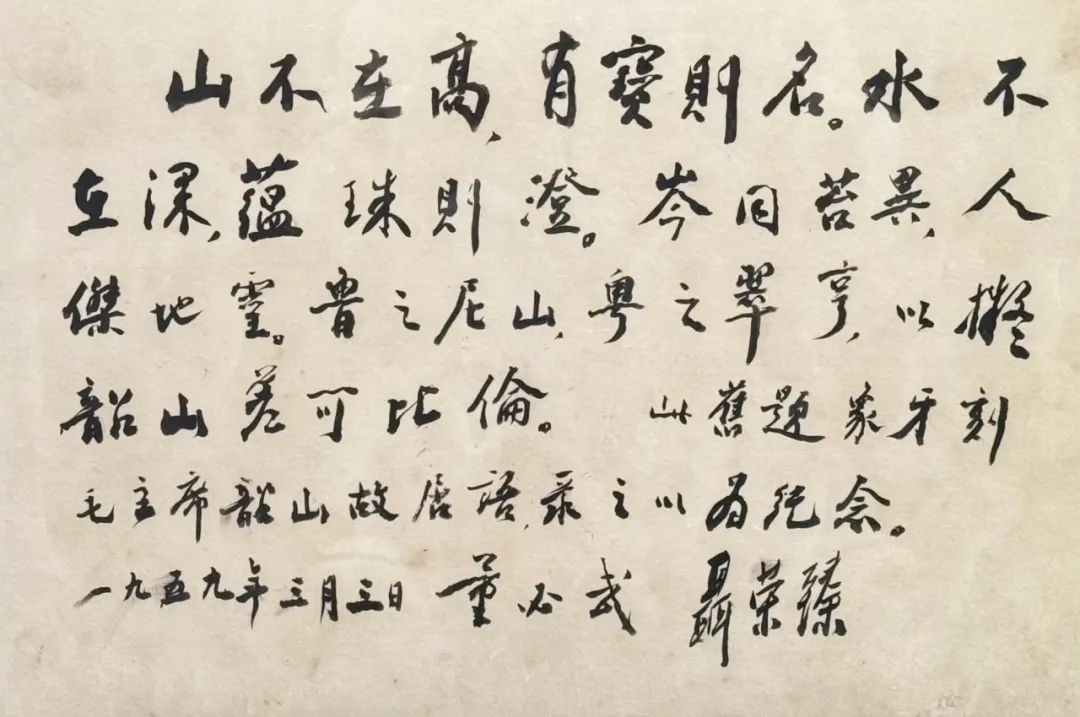 山不在高,有寶則名。水不
在深,蘊珠則澄。岑同苔異,人
傑地靈。魯之尼山,粤之翠亨,以擬
韶山差可比倫。 此舊題象牙刻
毛主席韶山故居語,录之以为纪念。
一九五九年三月三日 董必武 聶荣臻